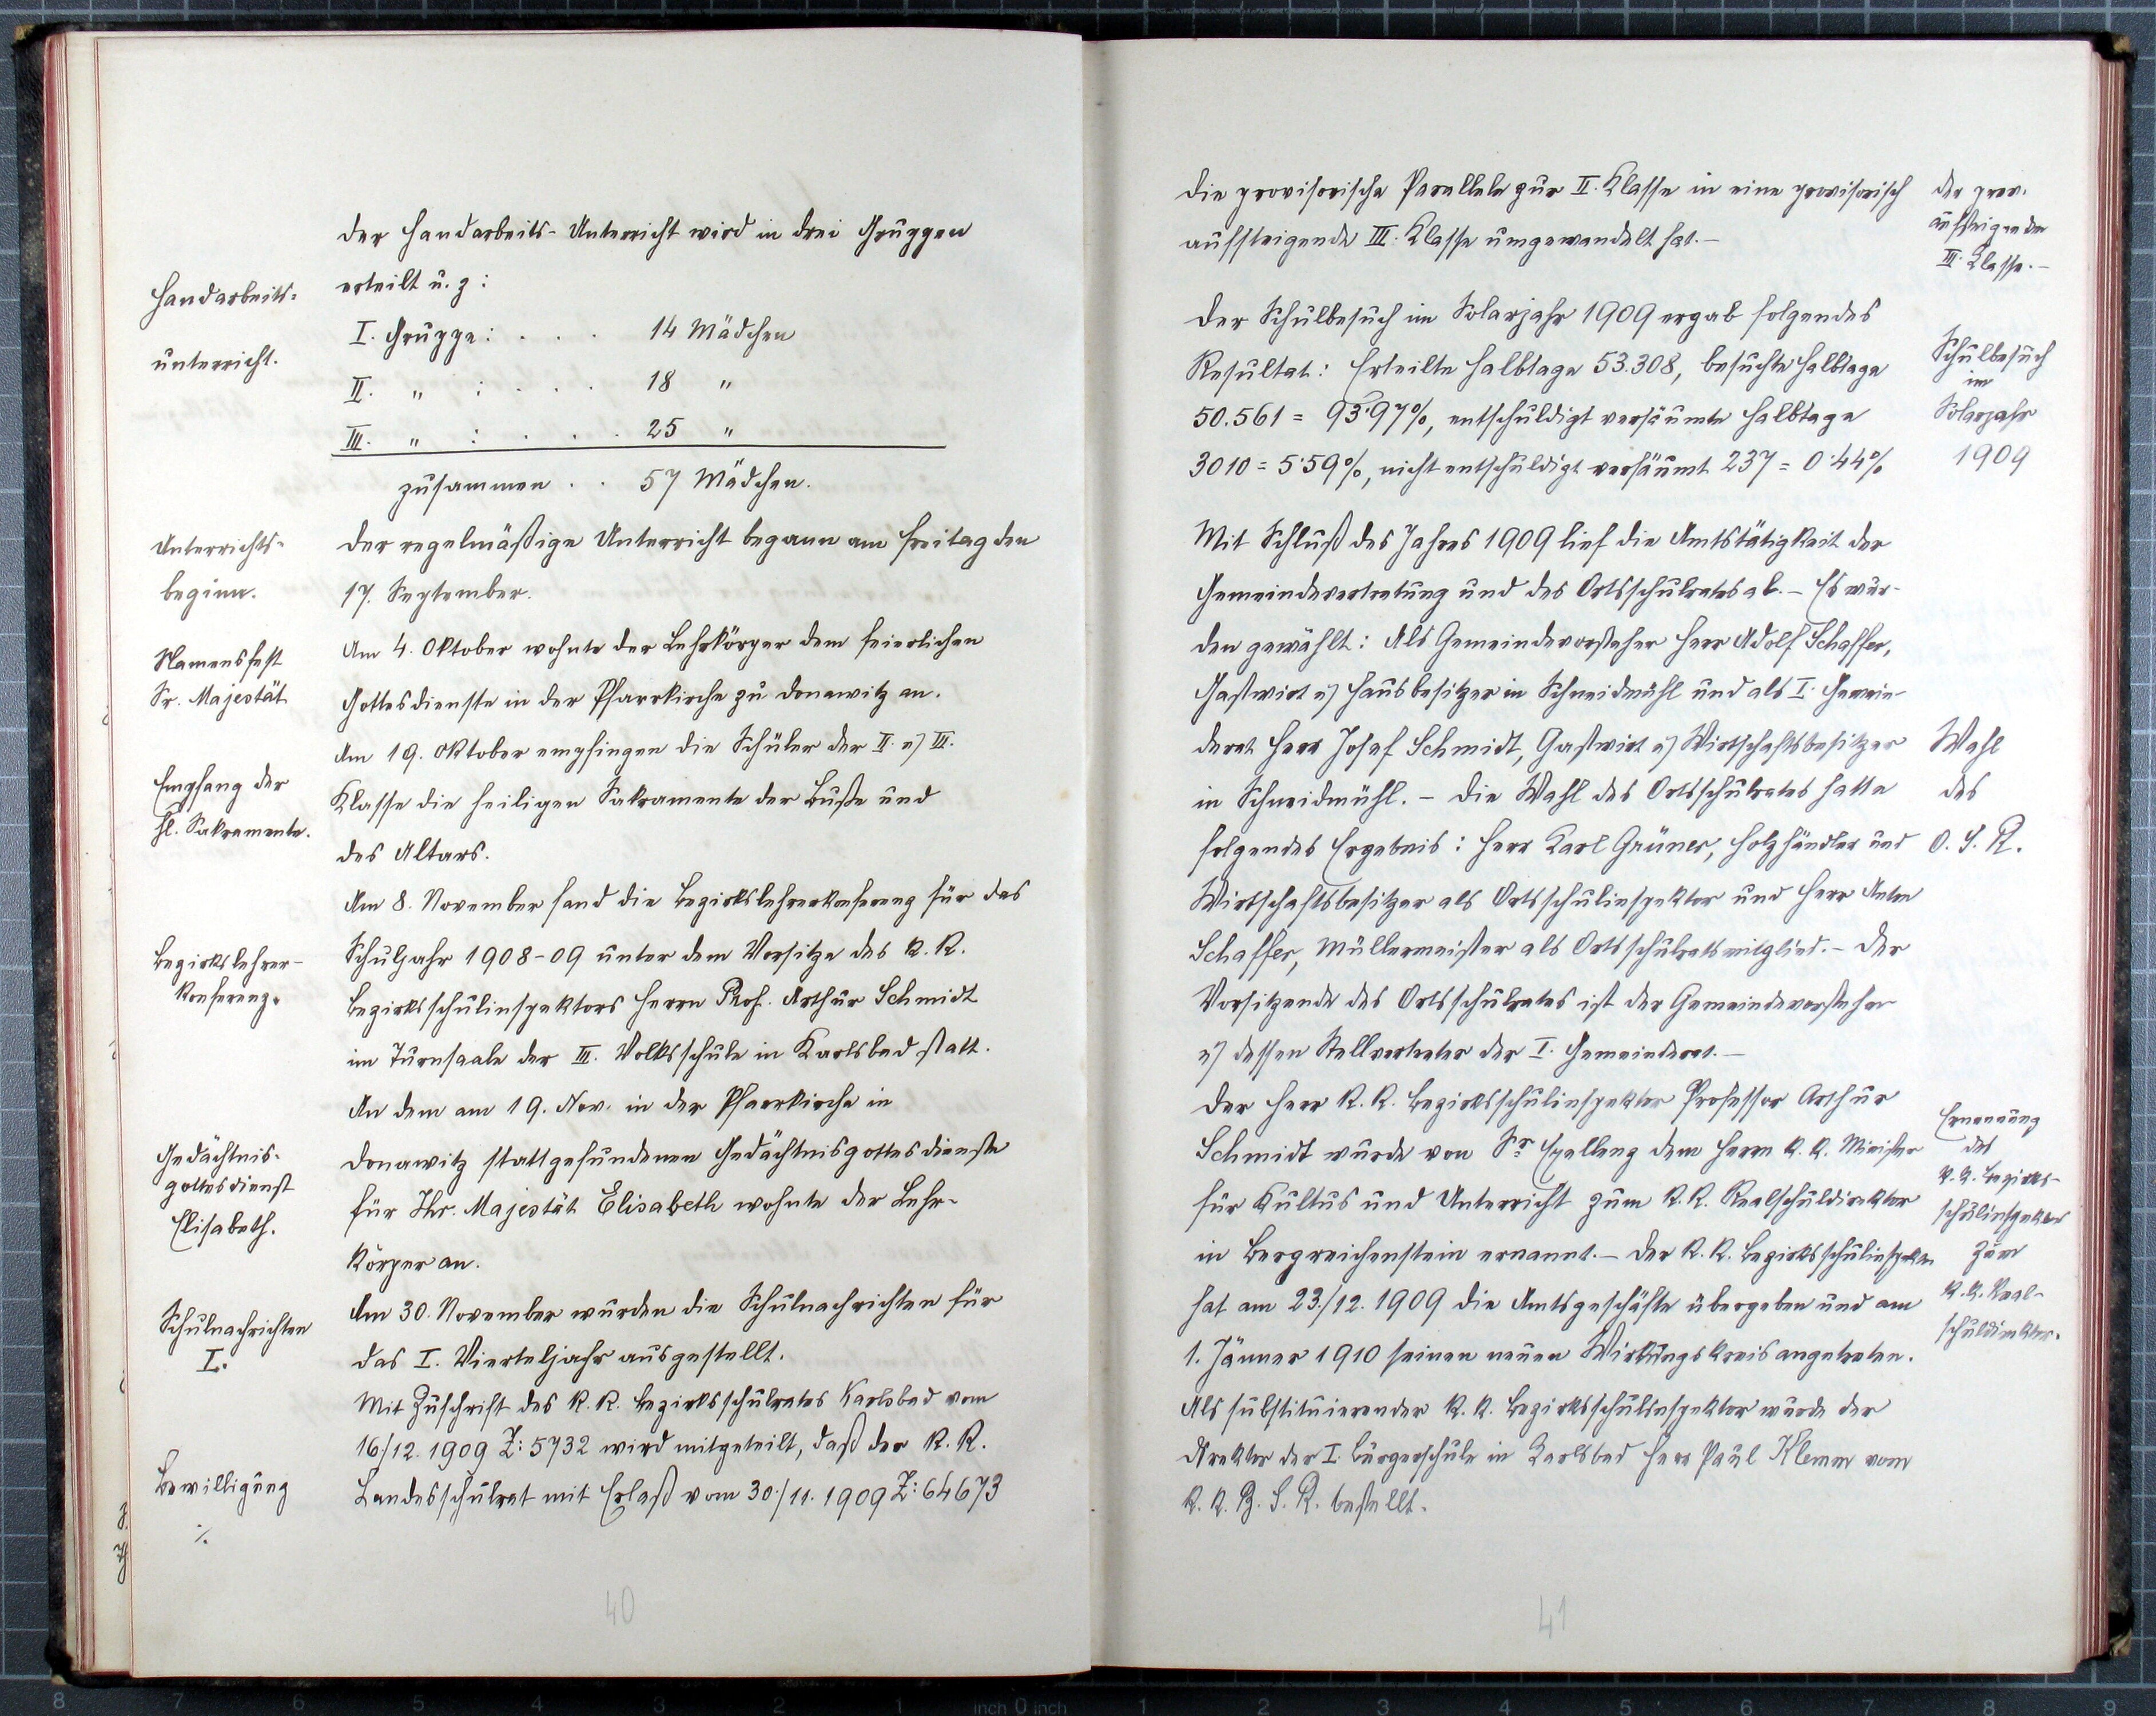 Der Handarbeits-Unterricht wird in drei Gruppen
Handarbeits-
unterricht.
erteilt u. z:
I. Gruppe: . . . 14 Mädchen
II. " : . . . 18 "
III. " : . . . . 25 "
zusammen . . 57 Mädchen.
Unterrichts-
beginn.
Der regelmäßige Unterricht begann am Freitag den
17. September.
Namensfest
Sr. Majestät
Am 4. Oktober wohnte der Lehrkörper dem feierlichen
Gottesdienste in der Pfarrkirche zu Donawitz an.
Empfang der
hl. Sakramente.
Am 19. Oktober empfingen die Schüler der II. u) III.
Klasse die heiligen Sakramente der Buße und
des Altars.
Bezirkslehrer-
konferenz.
Am 8. November fand die Bezirkslehrerkonferenz für das
Schuljahr 1908-09 unter dem Vorsitze des k. k.
Bezirksschulinspektors Herrn Prof. Arthur Schmidt
im Turnsaale der III. Volksschule in Karlsbad statt.
Gedächtnis-
gottesdienst
Elisabeth.
An dem am 19. Nov. in der Pfarrkirche in
Donawitz stattgefundenen Gedächtnisgottesdienste
für Ihr. Majestät Elisabeth wohnte der Lehr-
körper an.
Schulnachrichten
I.
Am 30. November wurden die Schulnachrichten für
das I. Vierteljahr ausgestellt.
Bewilligung
./.
Mit Zuschrift des k. k. Bezirksschulrates Karlsbad vom
16/12. 1909 Z: 5732 wird mitgeteilt, daß der k. k.
Landesschulrat mit Erlaß vom 30./11. 1909 Z: 64673
40
die provisorische Parallele zur II. Klasse in eine provisorisch
aufsteigende III. Klasse umgewandelt hat.-
der prov.
aufsteigenden
III. Klasse.-
Der Schulbesuch im Solarjahr 1909 ergab folgendes
Resultat: Erteilte Halbtage 53.308, besuchte Halbtage
50.561 = 93·97%, entschuldigt versäumte Halbtage
3010 = 5·59%, nicht entschuldigt versäumt 237 = 0·44%
Schulbesuch
im
Solarjahr
1909
Mit Schluß des Jahres 1909 lief die Amtstätigkeit der
Gemeindevertretung und des Ortsschulrates ab. - Es wur-
den gewählt: Als Gemeindevorsteher Herr Adolf Schaffer,
Gastwirt u) Hausbesitzer in Schneidmühl und als I. Gemein-
derat Herr Josef Schmidt, Gastwirt u) Wirtschaftsbesitzer
in Schneidmühl. - Die Wahl des Ortsschulrates hatte
folgendes Ergebnis: Herr Karl Grüner, Holzhändler und
Wirtschaftsbesitzer als Ortsschulinspektor und Herr Anton
Schaffer, Müllermeister als Ortsschulratsmitglied. - Der
Vorsitzende des Ortsschulrates ist der Gemeindevorsteher
u) dessen Stellvertreter der I. Gemeinderat.-
Wahl
des
O. S. R.
Der Herr k. k. Bezirksschulinspektor Professor Arthur
Schmidt wurde von Sr Exzellenz dem Herrn k. k. Minister
für Kultus und Unterricht zum k. k. Realschuldirektor
in Bergreichenstein ernannt. - Der k. k. Bezirksschulinspektor
hat am 23./12. 1909 die Amtsgeschäfte übergeben und am
1. Jänner 1910 seinen neuen Wirkungskreis angetreten.
Als substituierender k. k. Bezirksschulinspektor wurde der
Direktor der I. Bürgerschule in Karlsbad Herr Paul Klemm vom
k. k. B. S. R. bestellt.
Ernennung
des
k. k. Bezirks-
schulinspektors
zum
k. k. Real-
schuldirektor.
41